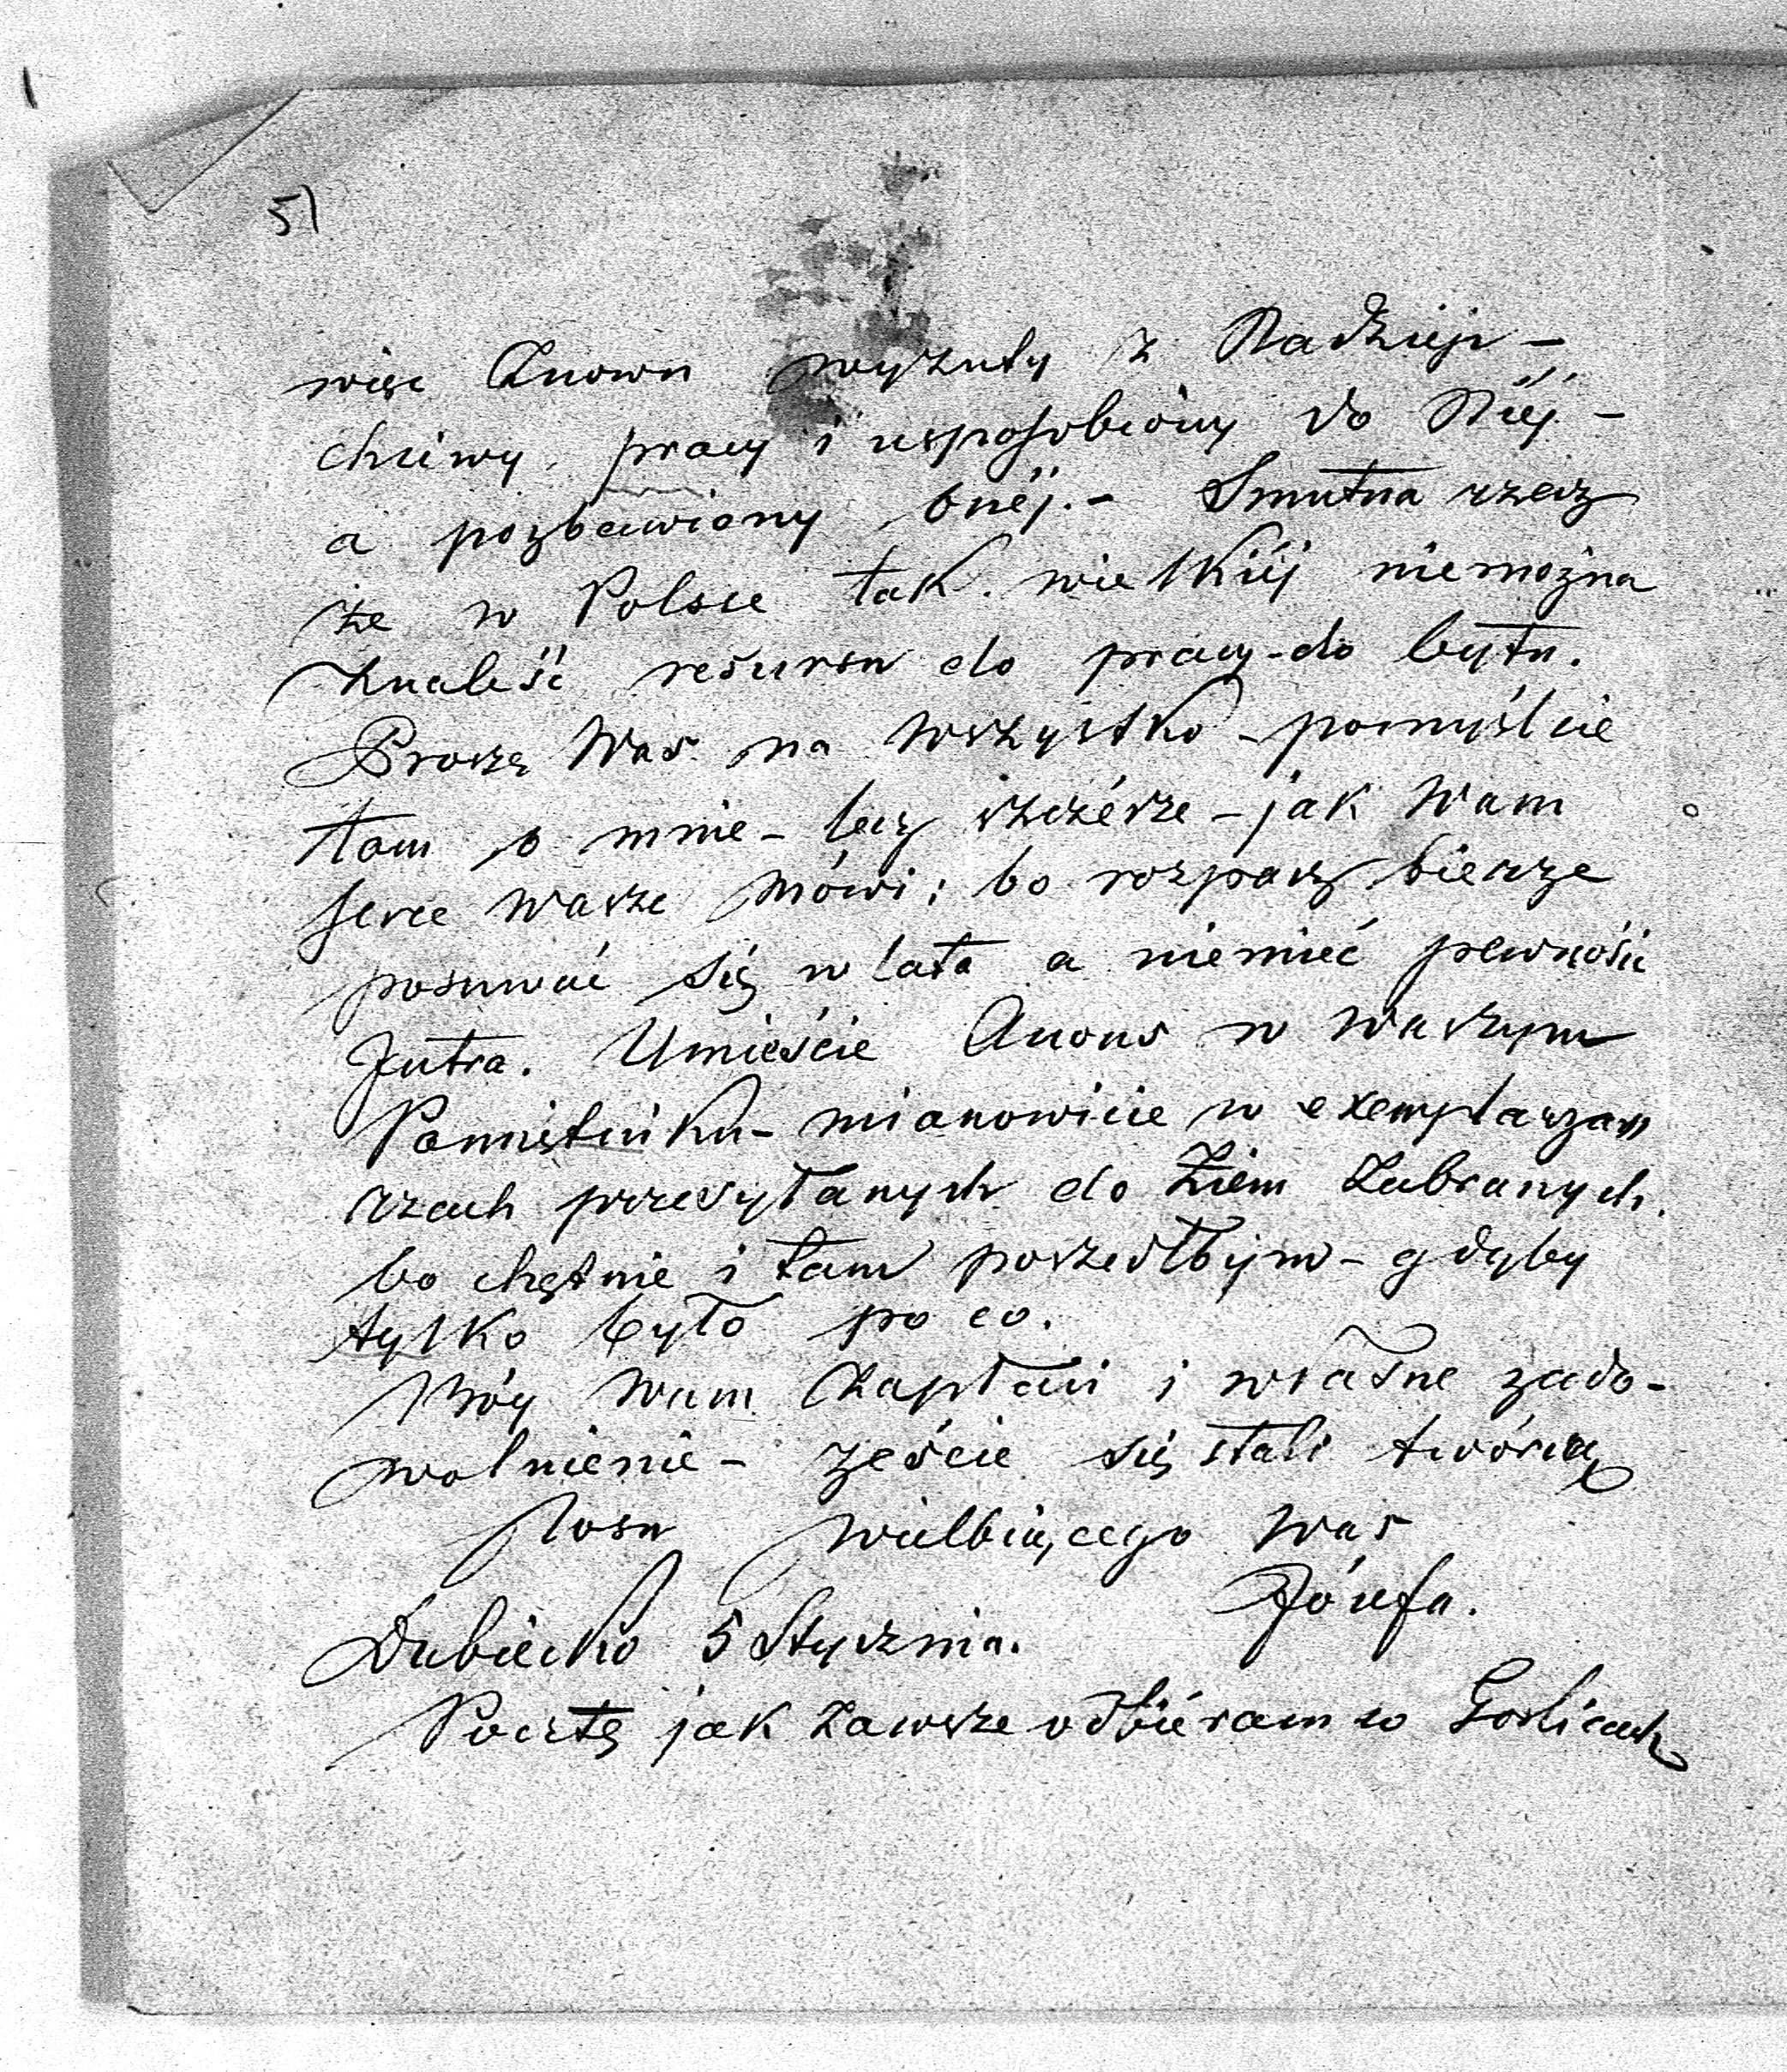 5)
więc znowu wyzuty z Nadzieji –
chciwy pracy i usposobiony do Niéj –
a pozbawiony onéj. – Smutna rzecz
że w Polsce tak wielkiéj niemożna
znaleść resursu do pracy – do bytu.
Proszę Was na wszystko – pomyślcie
tam o mnie – lecz szczérze – jak Wam
serce Wasze mówi; bo rozpacz bierze
posuwać się w lata a niemieć pewności
Jutra. Umieście Anons w Waszym
Pamiętniku – mianowicie w exemplarza
rzach przesyłanych do Ziem Zabranych.
bo chętnie i tam poszedłbym – gdyby
tylko było po co.
Bóg Wam zapłaci i własne zado-
wolnienie – żeście się stali twórcą
losu wielbiącego Was
Józefa.
Dubiecko 5 Stycznia.
Pocztę jak zawsze odbiéram w Gorlicach